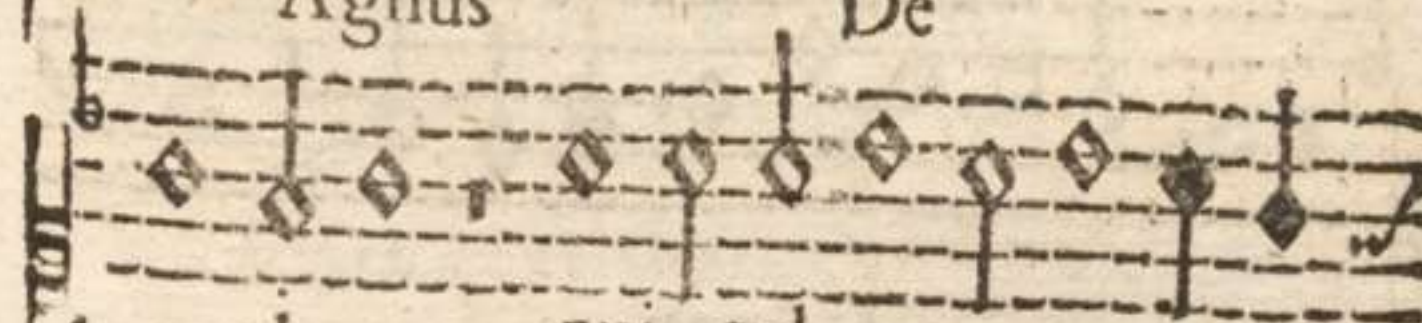 Agnus De